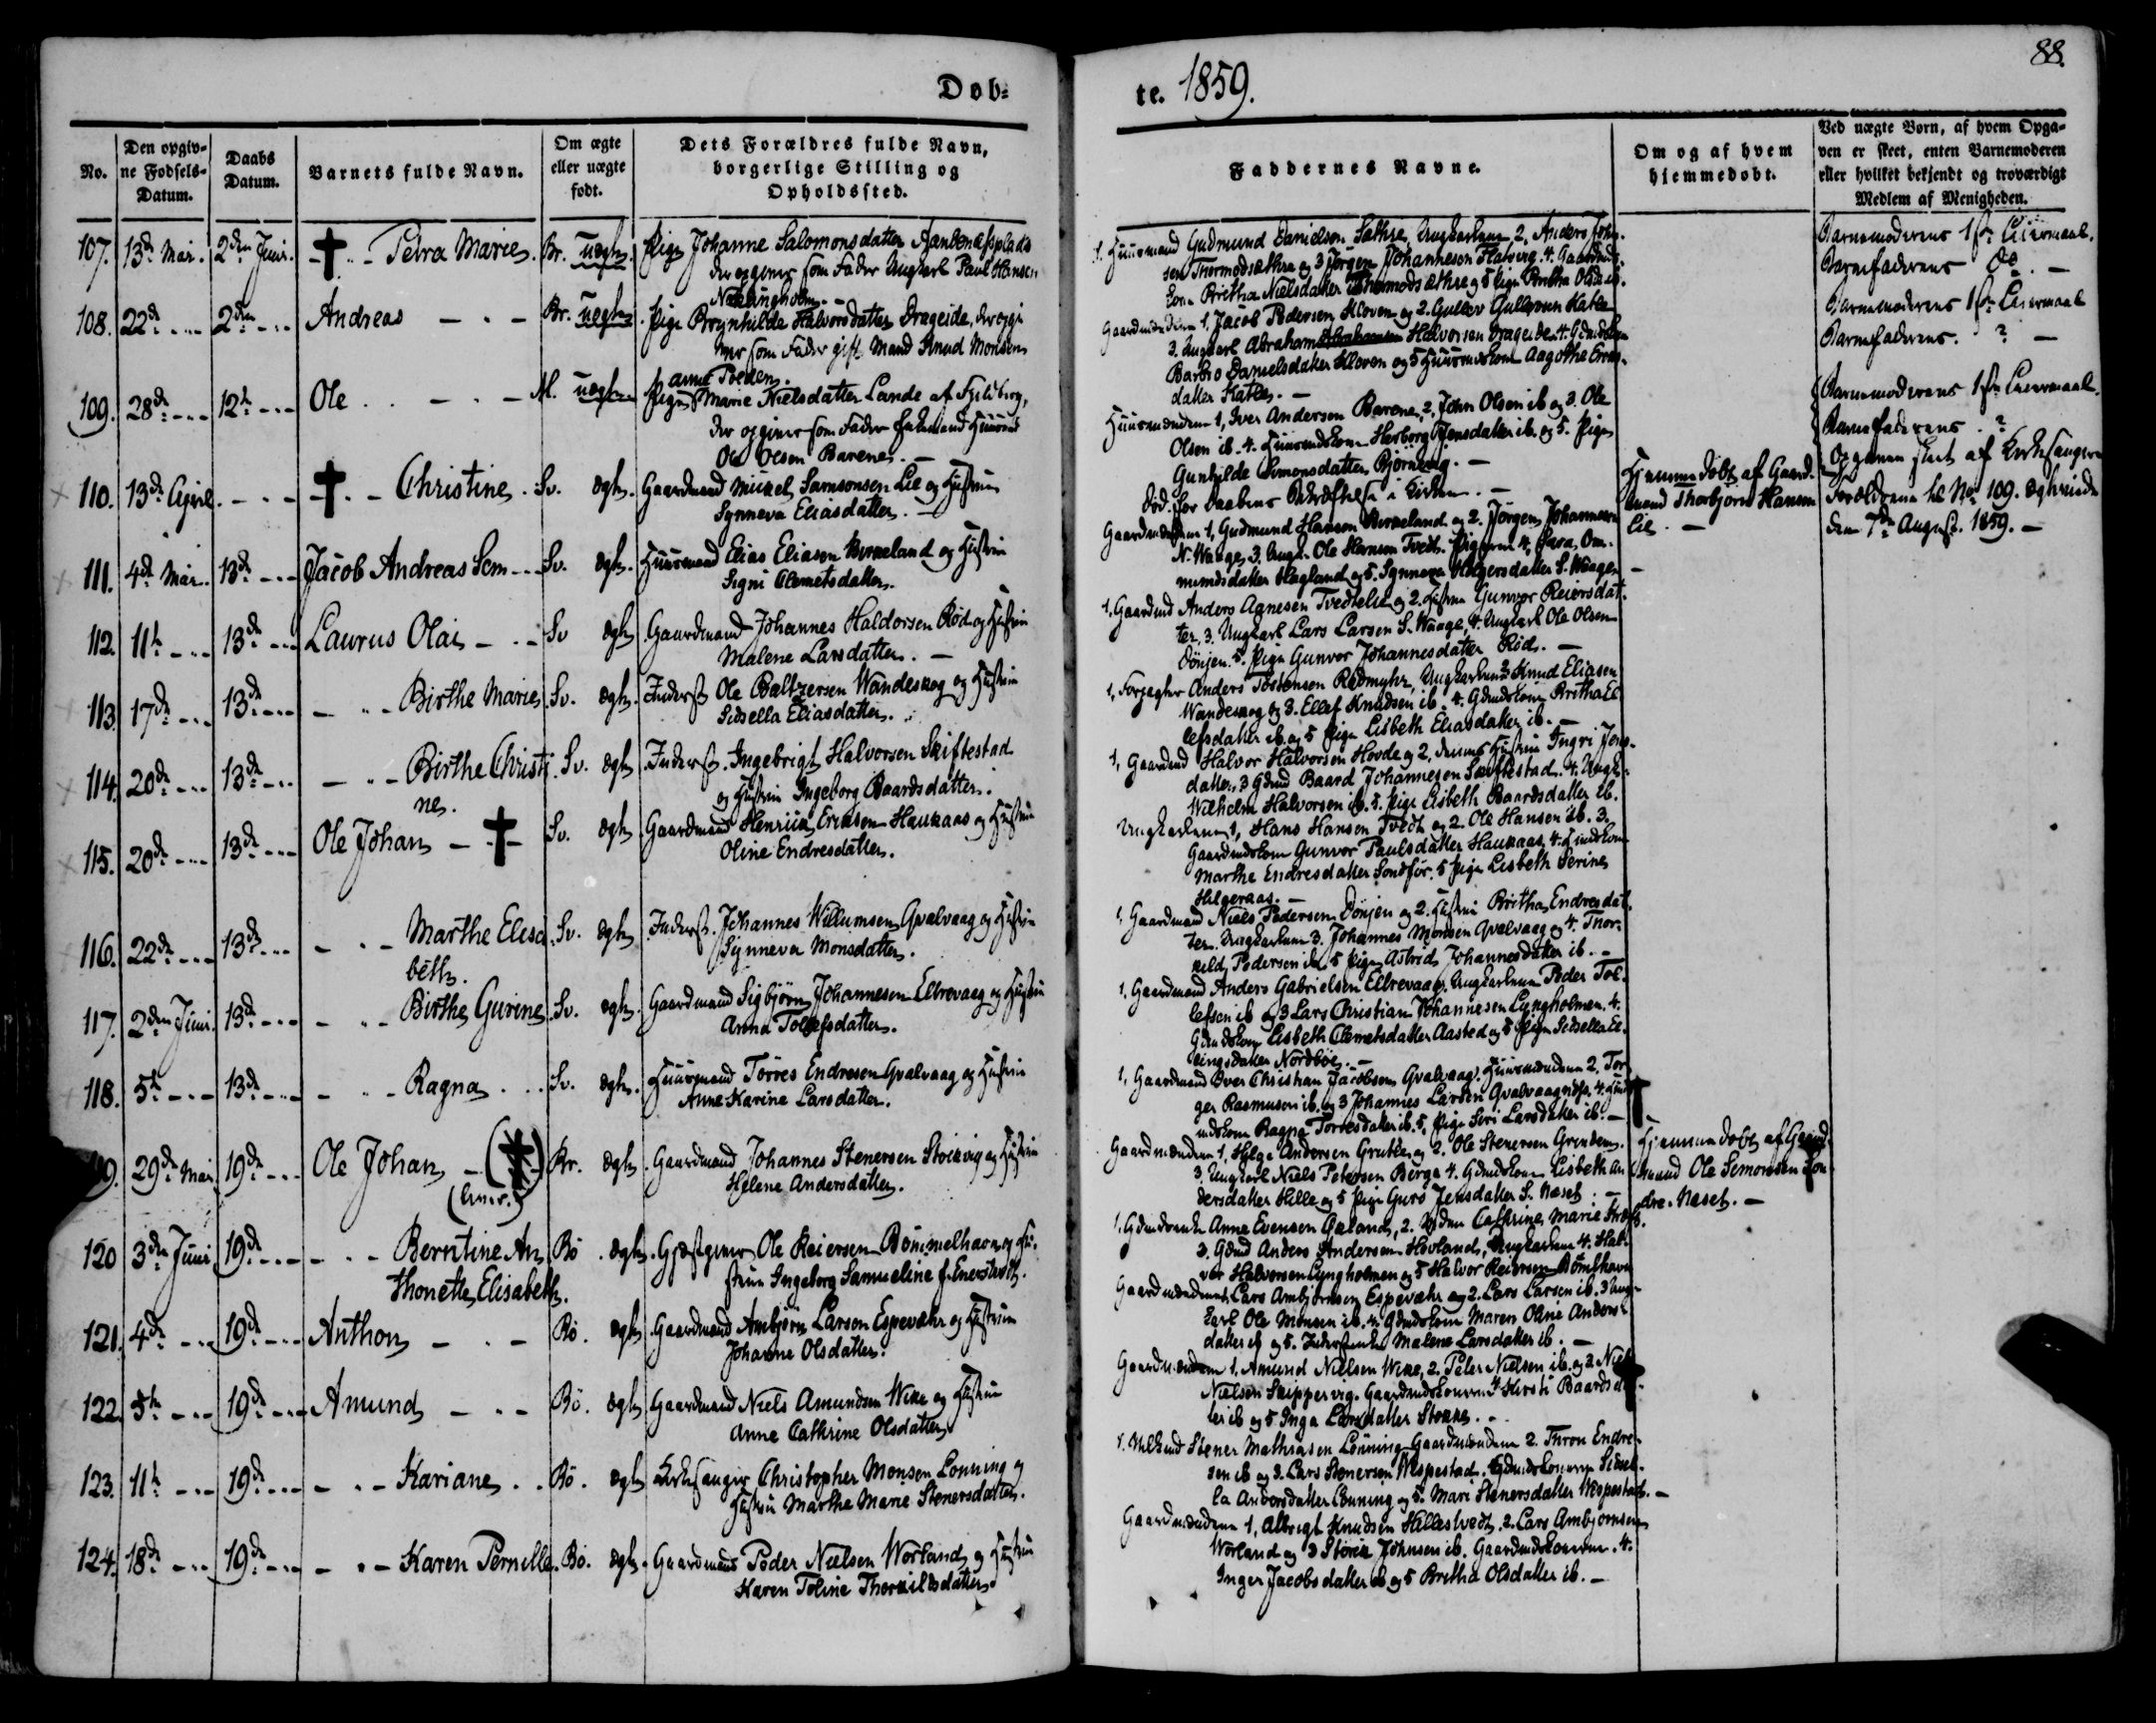 88.
Døb-
te. 1859.
No.
Den opgiv-
ne Fødsels-
Datum.
Daabs
Datum.
Barnets fulde Navn.
Om ægte
eller uægte
født.
Dets Forældres fulde Navn,
borgerlige Stilling og
Opholdssted.
Faddernes Navne.
Om og af hvem
hjemmedøbt.
Ved uægte Børn, af hvem Opga-
ven er skeet, enten Barnemoderen
eller hvilket bekjendt og troværdigt
Medlem af Menigheden.
107. 13de Mai. 2den Juni. Petra Marie. Br. uægte. Pige Johanne Salomonsdatter
der opgiver som Fader Ungkarl Paul Hansen
Næklingholm. -
1. Huusmand Gudmund Danielsen Sæthre, Ungkarlene 2, Anders John-
sen Thormodsæthre og 3 Jørgen Johannesen Flatverg. 4. Gaardmds-
kone Britha Nielsdatter Thormodsæthre og 5 Pige Britha Olsd. ib.
Barnemoderens 1ste Leiermaal.
Barnefaderens do. -
108. 22de 2den Andreas Br. uægte. Pige Brynhilde Halvorsdatter Drageide, der opgi
ver som Fader gift Mand Knud Monsen
Gaardmændene 1, Jacob Pedersen Kloven og 2. Gullev Gullevsen Katle
3. Ungkarl Abraham Halvorsen Drageide. 4. Gdmdskone
Barbro Danielsdatter Kloven og 5 Huusmdskone Aagothe
datter Katle. -
Barnemoderens 1ste Leiermaal
Barnefaderens. ? -
109. 28de 12te Ole M. uægte Pige Marie Nielsdatter Lande af Fjeldberg,
der opgiver som Fader Enkemand Huusmd
Ole Olsen Barene. -
Huusmændene 1, Iver Andersen Barene, 2, John Olsen ib og 3. Ole
Olsen ib. 4. Huusmdskone Herborg Jensdatter ib. og 5. Pige
Gunhilde Simonsdatter Bjørneng. -
Barnemoderens 1ste Leiermaal.
Barnefaderens ?
Opgaven skeet af Kirkesangeren
110. 13de April. Christine. Sv. ægte. Gaardmand Mikel Samsonsen Lie og Hustrue
Synneva Eliasdatter. -
Død før Daabens Bekræftelse i Kirken. -
Hjemmedøbt af Gaard-
mand Thorbjørn Hansen
Lie. -
Forældrene til No. 109. ægteviede
den 7de August. 1859. -
111. 4de Mai. 13de Jacob Andreas Sem Sv. ægte. Huusmand Elias Eliasen Birkeland og Hustrue
Signi Clemetsdatter.
Gaardmændene 1, Gudmund Hansen Birkeland og 2. Jørgen Johannesen
N. Waage, 3. Ungk. Ole Hansen Tvedt. Pigerne 4, Sara Om-
mundsdatter Hagland og 5. Synneva Holgersdatter S. Waage. -
112. 11te 13de Laurus Olai Sv ægte Gaardmand Johannes Haldorsen Rød og Hustrue
Malene Larsdatter. -
1. Gaardmd Anders Agnesen Tvedtelie og 2. Hustrue Gunvor Reiersdat-
ter. 3. Ungkarl Lars Larsen S. Waage, 4. Ungkarl Ole Olsen
Dønjen. 5. Pige Gunvor Johannesdatter Rød. -
113. 17de 13de Birthe Marie Sv. ægte. Inderst Ole Baltzersen Wandeskog og Hustrue
Sidsella Eliasdatter.
1, Forpagter Anders Tostensen Rødmyhr, Ungkarlene 2 Knud Eliasen
Wandeskog og 3. Ellef Knudsen ib. 4. Gdmdskone Britha El-
lefsdatter ib. og 5 Pige Lisbeth Eliasdatter ib. -
114. 20de 13de Birthe Christi
ne.
Sv. ægte Inderst. Ingebrigt Halvorsen Skiftestad
og Hustrue Ingeborg Baardsdatter.
1, Gaardmd Halvor Halvorsen Hovde og 2, dennes Hustrue Ingri Jens-
datter, 3 Gdmd Baard Johannesen Skiftestad. 4. Ungk.
Wilhelm Halvorsen ib. 5. Pige Lisbeth Baardsdatter ib.
115. 20de 13de Ole Johan Sv. ægte Gaardmand Henrik Eriksen Haukaas og Hustrue
Oline Endresdatter.
Ungkarlene 1, Hans Hansen Tvedt og 2. Ole Hansen ib. 3.
Gaardmdskone Gunvor Paulsdatter Haukaas, 4. Gmdskone
Marthe Endresdatter Søndfør. 5 Pige Lisbeth Serine
Helgeraas. -
116. 22de 13de Marthe Elesa
beth.
Sv. ægte Inderst. Johannes Willumsen Qvalvaag og Hustrue
Synneva Monsdatter.
1. Gaardmand Niels Pedersen Dønjen og 2. Hustrue Britha Endresdat-
ter. Ungkarlene 3. Johannes Monsen Qvalvaag og 4. Thor-
kild Pedersen ib. 5 Pige Astrid Johannesdatter ib. -
117. 2den Juni. 13de Birthe Gurine Sv. ægte. Gaardmand Sigbjørn Johannesen Ellrevaag og Hustrue
Anna Tollefsdatter.
1. Gaardmand Anders Gabrielsen Ellrevaag, Ungkarlene Peder Tol-
lefsen ib og 3 Lars Christian Johannesen Lyngholmen. 4.
Gmdskone Lisbeth Clemetsdatter Aasted og 5 Pige Sidsella El-
lingsdatter Nordbøe. -
118. 5te 13de Ragna Sv. ægte. Huusmand Torres Endresen Qvalvaag og Hustrue
Anne Karine Larsdatter.
1, Gaardmand Iver Christian Jacobsen Qvalvaag. Huusmændene 2. Tor-
ger Rasmusen ib. og 3 Johannes Larsen Qvalvaagnæs. 4. Huus-
mdskone Ragna Torresdatter ib. 5. Pige Siri Larsdatter ib. -
119. 29de Mai 19de Ole Johan Br. ægte. Gaardmand Johannes Stenersen Stokvig og Hustrue
(Amr.)
Helene Andersdatter.
Gaardmændene 1. Helge Andersen Grutle og 2. Ole Stenersen Grindem.
3. Ungkarl Niels Petersen Berge 4. Gdmdskone Lisbeth An-
dersdatter Hille og 5 Pige Guro Jensdatter S. Næset. -
Hjemmedøbt af Gaard-
mand Ole Simonsen Søn-
dre Næset. -
120 3de Juni 19de Berntine An
thonette Elisabeth.
Bø ægte. Gjæstgiver Ole Reiersen Bømmelhavn og Hu-
strue Ingeborg Samueline f. Enerstvedt.
1. Gdmdsenke Anna Evensen Gæland, 2. Cathrine Marie
3. Gdmd Anders Andersen Hovland, Ungkarlene 4. Hal-
vor Halvorsen Lyngholmen og 5 Halvor Reiersen Bømlhavn
121. 4de 19de Anthon Bø. ægte Gaardmand Ambjørn Larsen Espevæhr og Hustrue
Johanne Olsdatter.
Gaardmændene 1, Lars Ambjørnsen Espevæhr og 2. Lars Larsen ib. 3 Ung-
karl Ole Monsen ib. 4. Gdmdskone Maren Oline Anders-
datter ib og 5. Malene Larsdatter ib. -
122 5te 19de Amund Bø. ægte Gaardmand Niels Amundsen Wike og Hustrue
Anne Cathrine Olsdatter
Gaardmændene 1. Amund Nielsen Wike, 2. Peter Nielsen ib. og 3. Niels
Nielsen Skippervig. Gaardmdskonerne 4 Kirsti Baardsdat-
ter ib og 5. Inga Larsdatter Stokke. -
123. 11te 19de Kariane Bø. ægte Kirkesanger Christopher Monsen Lønning og
Hustrue Marthe Marie Stenersdatter.
1. Stener Mathiasen Lønning Gaardmændene 2. Thron Endre-
sen ib og 3. Lars Stenersen Wespestad. Gdmdskonerne Sidsel-
la Andersdatter Lønning og 5. Mari Stenersdatter Wespestad. -
124. 18de 19de Karen Pernille Bø. ægte. Gaardmand Peder Nielsen Worland og Hustrue
Karen Toline Thorkildsdatter
Gaardmændene 1, Albrigt Knudsen Hillestvedt, 2. Lars Ambjørnsen
Worland og 3 Størk Johnsen ib. Gaardmdskonerne. 4.
Inger Jacobsdatter ib og 5 Britha Olsdatter ib. -